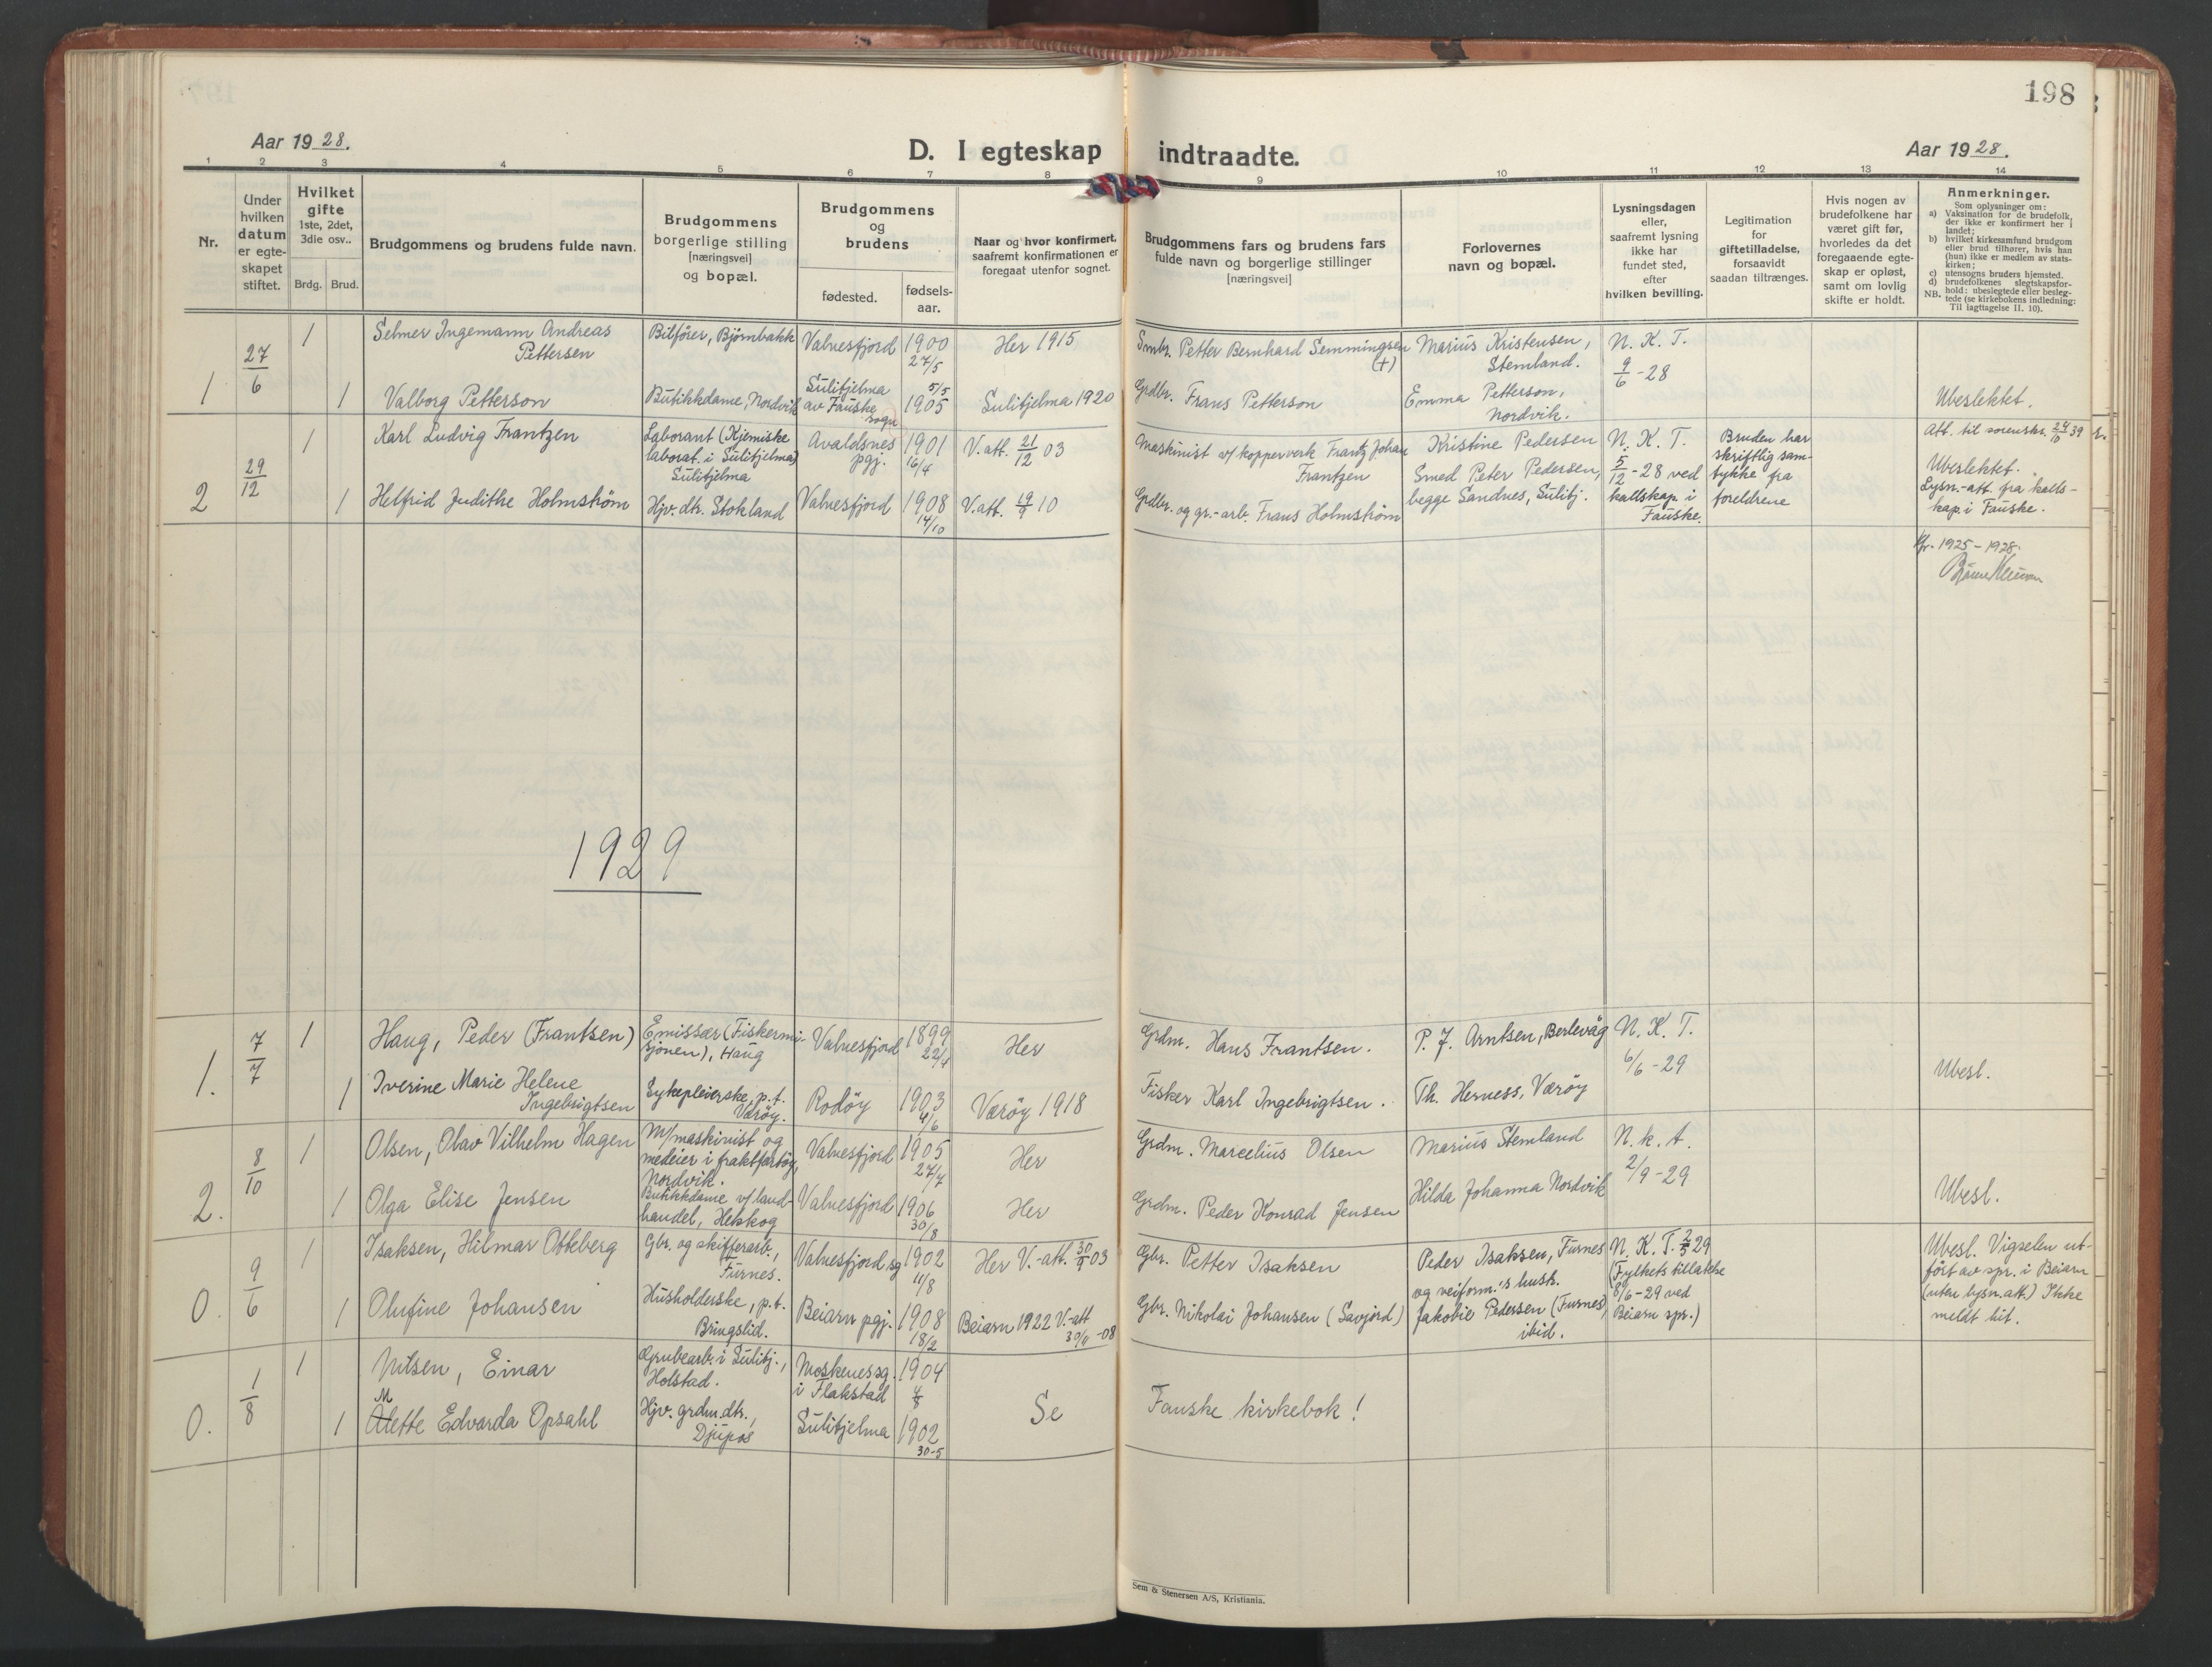 198
Aar 1928.
D. I egteskap indtraadte.
Aar 1928.
1 2 3 4 5 6 7 8 9 10 11 12 13 14
Nr.
Under
hvilken
datum
er egte-
skapet
stiftet.
Hvilket
gifte
1ste, 2det,
3die osv..
Brdg. Brud.
Brudgommens og brudens fulde navn.
Brudgommens
borgerlige stilling
[næringsvei]
og bopæl.
Brudgommens
og
brudens
fødested.
fødsels-
aar.
Naar og hvor konfirmert,
saafremt konfirmationen er
foregaat utenfor sognet.
Brudgommens fars og brudens fars
fulde navn og borgerlige stillinger
[næringsvei]
Forlovernes
navn og bopæl.
Lysningsdagen
eller,
saafremt lysning
ikke har
fundet sted,
efter
hvilken bevilling.
Legitimation
for
giftetilladelse,
forsaavidt
saadan tiltrænges.
Hvis nogen av
brudefolkene har
været gift før,
hvorledes da det
foregaaende egte-
skap er opløst,
samt om lovlig
skifte er holdt.
Anmerkninger.
Som oplysninger om:
a) Vaksination for de brudefolk,
der ikke er konfirmert her i
landet;
b) hvilket kirkesamfund brudgom
eller brud tilhører, hvis han
(hun) ikke er medlem av stats-
kirken;
c) utensogns bruders hjemsted.
d) brudefolkenes slegtskapsfor-
hold: ubeslegtede eller besleg-
NB. tede (se kirkebokens indledning:
Til iagttagelse II. 10).
1
27/6
1
Selmer Ingemann Andreas
Pettersen
Bilfører, Bjørnbakk
Valnesfjord
1900
27/5
Her 1915
Smbr. Petter Bernhard Semmingsen
(+)
Marius Kristensen,
Stemland.
N. K. T.
9/6 - 28
1
Valborg Petterson
Butikkdame, Nordvik
Sulitjelma
av Fauske
sogn
5/5
1905
Sulitjelma 1920
Grdbr. Frans Petterson
Emma Petterson,
Nordvik.
Ubeslektet.
2
29/12
1
Karl Ludvig Frantzen
Laborant (Kjemiske
laborat. i Sulitjelma)
Sulitjelma
Avaldsnes
pgj.
1901
16/4
V. att. 21/12 03
Maskinist v/ kopperverk Frantz Johan
Frantzen
Kristine Pedersen
Smed Peter Pedersen,
begge Sandnes, Sulitj.
N. K. T.
5/12 - 28 ved
kallskap. i
Fauske.
Bruden har
skriftlig sam-
tykke fra
foreldrene
Att. til sorenskr. 24/10 39
Ubeslektet.
Lysn.-att. fra kalls-
kap. i Fauske.
1
Helfrid Judithe Holmstrøm
Hjv. dtr. Stokland
Valnesfjord
1908
14/10
V. att. 19/9 10
Grdbr. og gr.-arb. Frans Holmstrøm
1925 - 1928.
1929
1.
7/7
1
Haug, Peder (Frantsen)
Emissær (Fiskermi-
sjonen), Haug
Valnesfjord
1899
22/4
Her
Grdm. Hans Frantsen.
P. J. Arntsen, Berlevåg
N. K. T.
6/6 - 29
Ubesl.
1
Iverine Marie Helene
Ingebrigtsen
Sykepleierske, p.t.
Værøy.
Rodøy
1903
4/6
Værøy 1918
Fisker Karl Ingebrigtsen.
Th. Herness, Værøy
2.
8/10
1
Olsen, Olav Vilhelm Hagen
M/maskinist og
medeier i fraktfartøy,
Nordvik.
Valnesfjord
1905
27/4
Her
Grdm. Marcelius Olsen
Marius Stemland
N. k. t.
2/9 - 29
Ubesl.
1
Olga Elise Jensen
Butikkdame v/ land-
handel, Hekkog
Valnesfjord
1906
30/8
Her
Grdm. Peder Konrad Jensen
Hilda Johanna Nordvik
0.
9/6
1
Isaksen, Hilmar Otteberg
Gbr. og skifferarb.,
Furnes.
Valnesfjord sg
1902
11/8
Her V.-att. 30/9 03
Gbr. Petter Isaksen
Peder Isaksen, Furnes
og veiform.'s hust.
Jakobie Pedersen (Furnes),
ibid.
N. K. T. 2/5 29
(Fylkets tillatelse
8/6 - 29 ved
Beiarn spr.)
Ubesl. Vigselen ut-
ført av spr. i Beiarn
(uten lysn. att.) Ikke
meldt hit.
1
Olufine Johansen
Husholderske, p.t.
Bringslid.
Beiarn pgj.
1908
18/2
Beiarn 1922 V.-att
30/9 -08
Gbr. Nikolai Johansen (Savjord)
0.
1/8
1
Nilsen, Einar
Grubearb. i Sulitj.,
Holstad.
Moskenes sg.
i Flakstad
1904
4/8
Se Fauske kirkebok!
1
Mette Edvarda Opsahl
Hjv. grdm. dtr.,
Djupos
Sulitjelma
1902
30-5
Sem & Stenersen A/S, Kristiania.